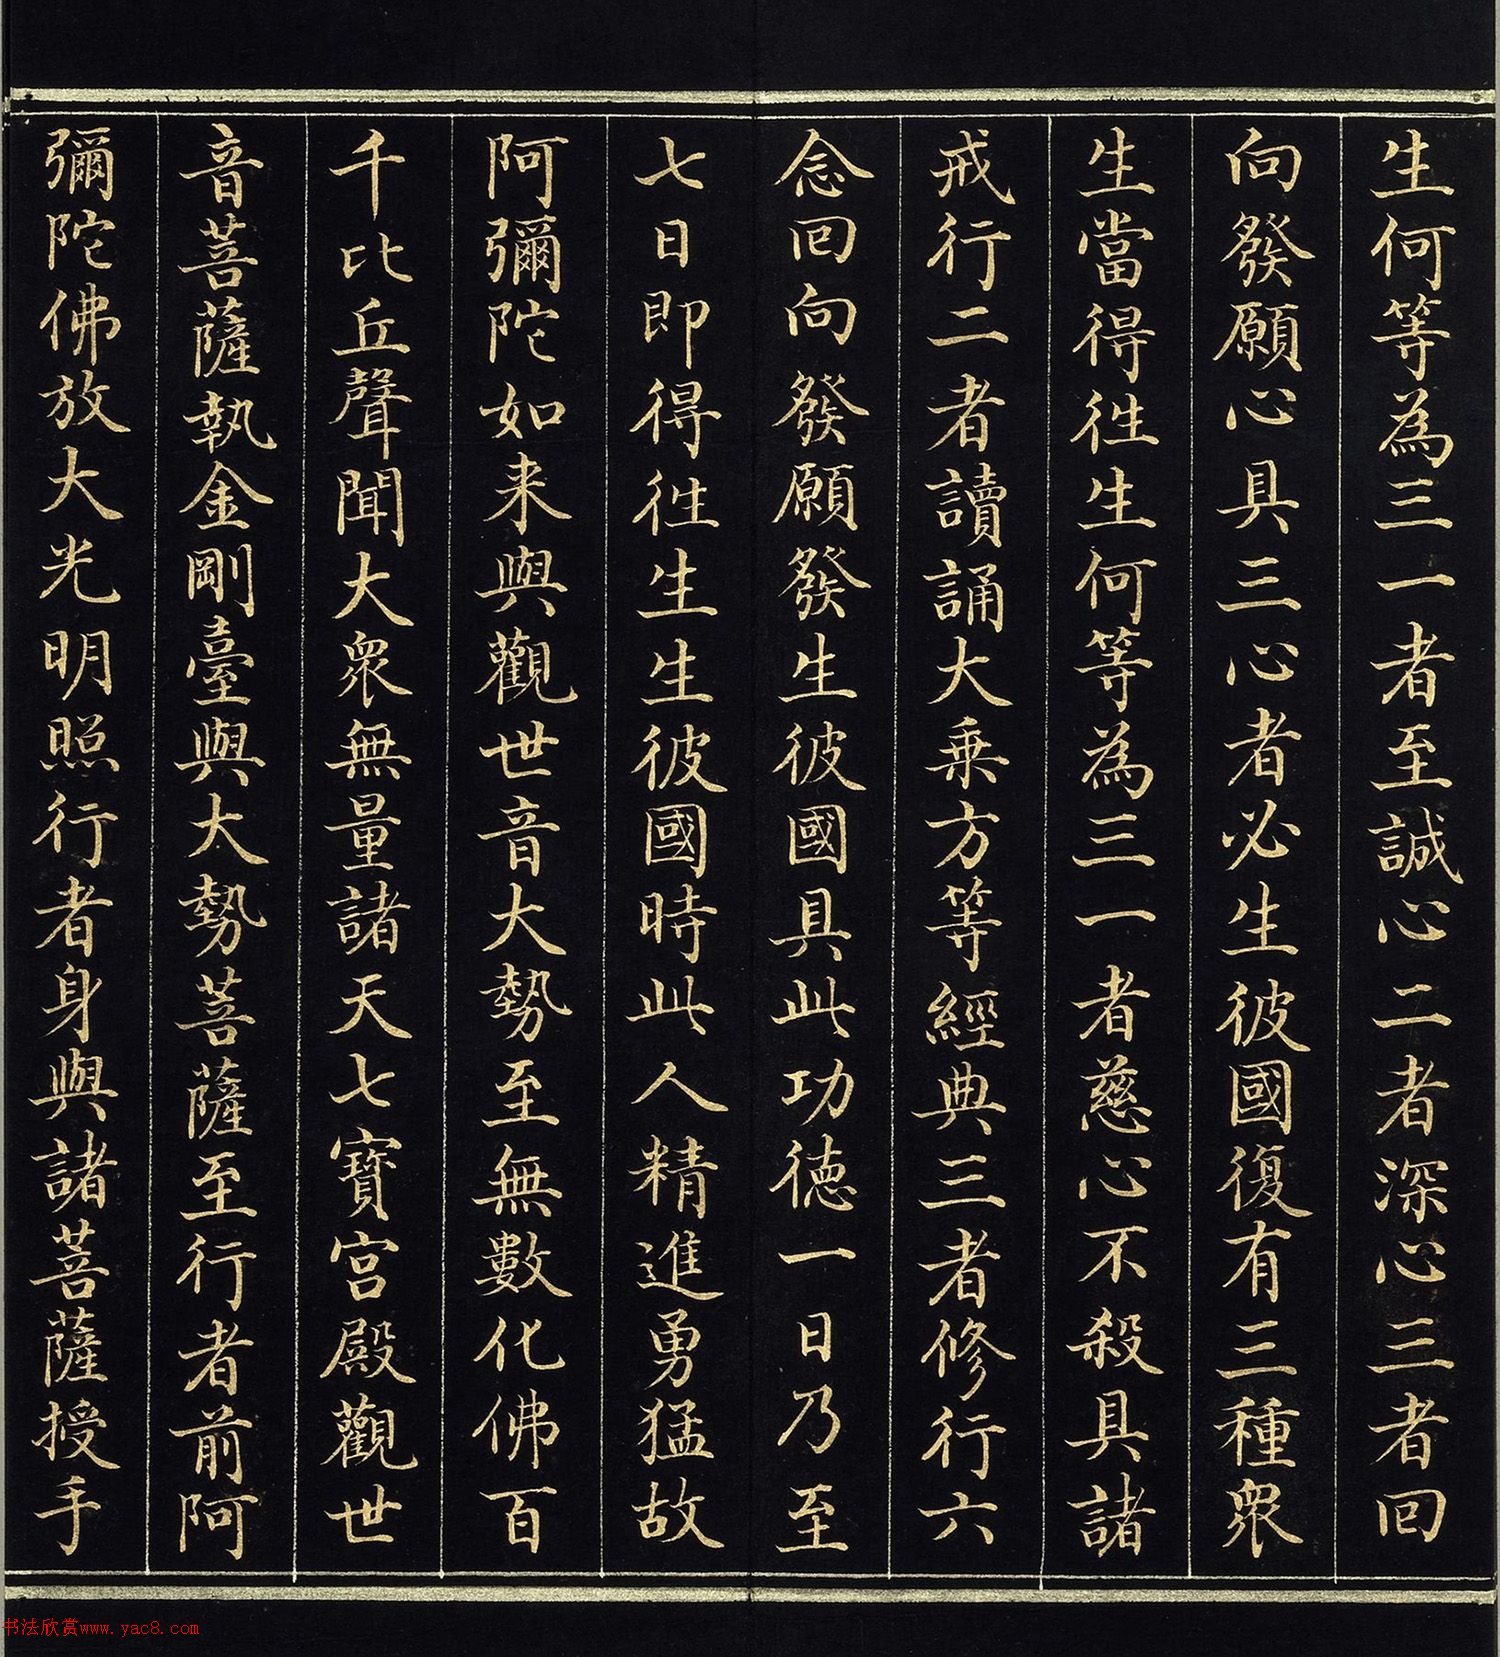 生何等為三一者至誠心二者深心三者回
向發願心具三心者必生彼國復有三種眾
生當得往生何等為三一者慈心不殺具諸
戒行二者讀誦大乘方等經典三者修行六
念回向發願發生彼國具此功德一日乃至
七日即得往生生彼國時此人精進勇猛故
阿彌陀如来與觀世音大勢至無數化佛百
千比丘聲聞大眾無量諸天七寶宮殿觀世
音菩薩執金剛臺與大勢菩薩至行者前阿
彌陀佛放大光明照行者身與諸菩薩授手
书法欣赏www.yac8.com